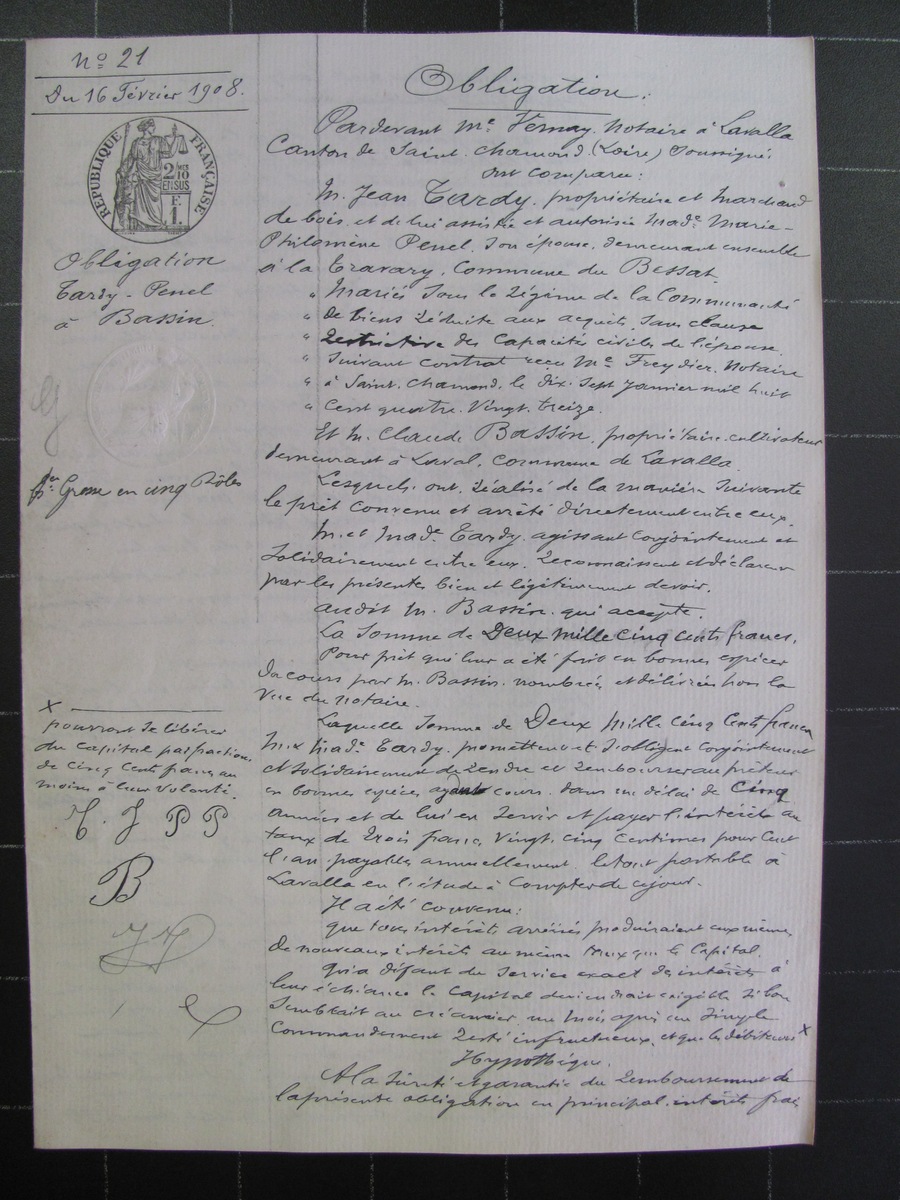 N° 21
Du 16 Février 1908.
RÉPUBLIQUE FRANÇAISE
2/10 EN SUS
F. 1.
Obligation
Tardy - Penel
à Bassin.
Grosse en cinq Rôles
x
pourront se libérer
du capital par fraction
de cinq cents francs au
moins à leur volonté.
T. J P P
B
Obligation.
Pardevant Me Vernay. Notaire à Lavalla
Canton de Saint. Chamond. (Loire) Soussigné.
ont comparu:
M. Jean Tardy, propriétaire et marchand
de bois et de lui assistée et autorisée Made Marie-
Philomène Penel. Son épouse. demeurant ensemble
à la Travary. Commune du Bessat
" Mariés sous le régime de la Communauté
" de biens réduite aux acquêts, sans clause
" Restrictive des Capacités civiles de l'épouse.
" Suivant contrat reçu Me Freydier. Notaire
" à Saint. Chamond, le dix. Sept Janvier mil huit
" Cent quatre. Vingt. treize.
Et M. Claude Bassin, propriétaire-cultivateur
demeurant à Laval, commune de Lavalla.
Lesquels ont réalisé de la manière suivante
le prêt convenu et arrêté directement entre eux.
M. et Made Tardy. agissant conjointement et
Solidairement entre eux. Reconnaissent et déclarent
par les présentes bien et légitimement devoir.
audit M. Bassin. qui accepte.
La Somme de Deux mille cinq cents francs.
Pour prêt qui leur a été fait en bonnes espèces
du cours par M. Bassin. nombrées et délivrées hors la
Vue du notaire.
Laquelle Somme de Deux mille cinq cents francs
M. x Made Tardy. promettent et s'obligent conjointement
et solidairement de rendre et rembourser au prêteur
en bonnes espèces ayant cours. dans un délai de Cinq
années et de lui en servir et payer l'intérêt au
taux de trois francs Vingt. cinq centimes pour cent
l'an payables annuellement. le tout portable à
Lavalla en l'étude à compter de ce jour.
Il a été convenu:
que tous intérêts arriérés produiraient eux mêmes
de nouveaux intérêts au même taux que le Capital.
Qu'à défaut du service exact des intérêts à
leur échéance le capital deviendrait exigible si bon
Semblait au créancier un mois après un simple
Commandement resté infructueux. et que les débiteurs x
Hypothèque.
A la sûreté et garantie du remboursement de
la présente obligation en principal. intérêts frais